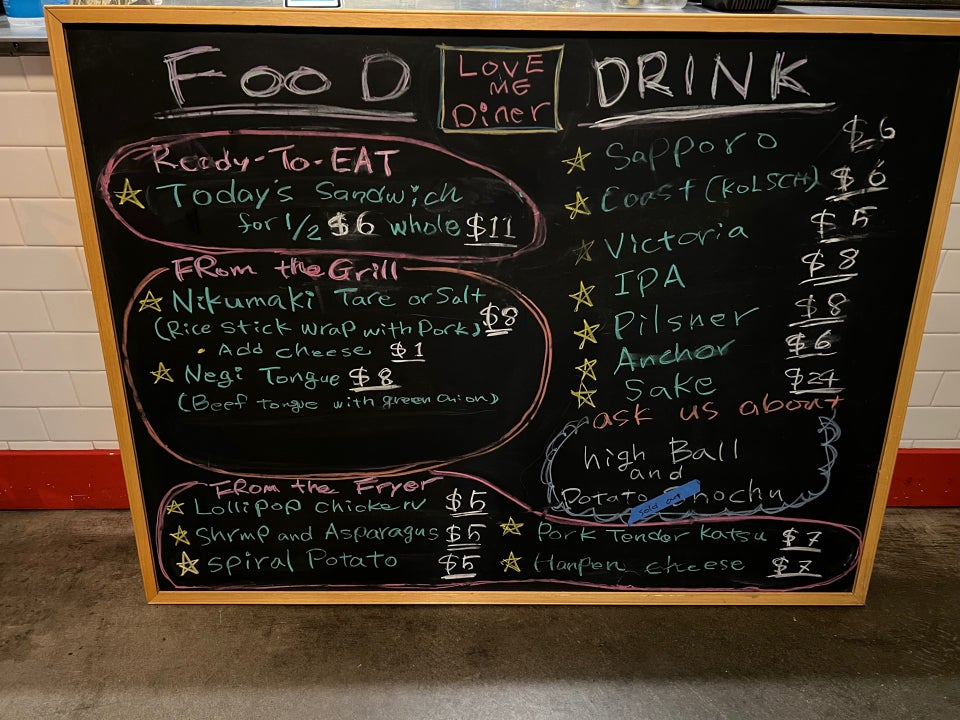 FooD
LOVE
ME
Diner
DRINK
Ready-To-EAT
Today's Sandwich
for 1/2 $6 whole $11
FRom the Grill
Nikumaki Tare or Salt
(Rice stick wrap with Pork) $8
• Add cheese $1
Negi Tongue $8
(Beef tongue with green onion)
FRom the Fryer
Lollipop chicken $5
Shrmp and Asparagus $5
spiral Potato $5
Pork Tender Katsu $7
Hanpen cheese $7
Sapporo $6
Coast (KOLSCH) $6
Victoria $5
IPA $8
Pilsner $8
Anchor $6
Sake $24
ask us about
high Ball
and
Potato
sold out